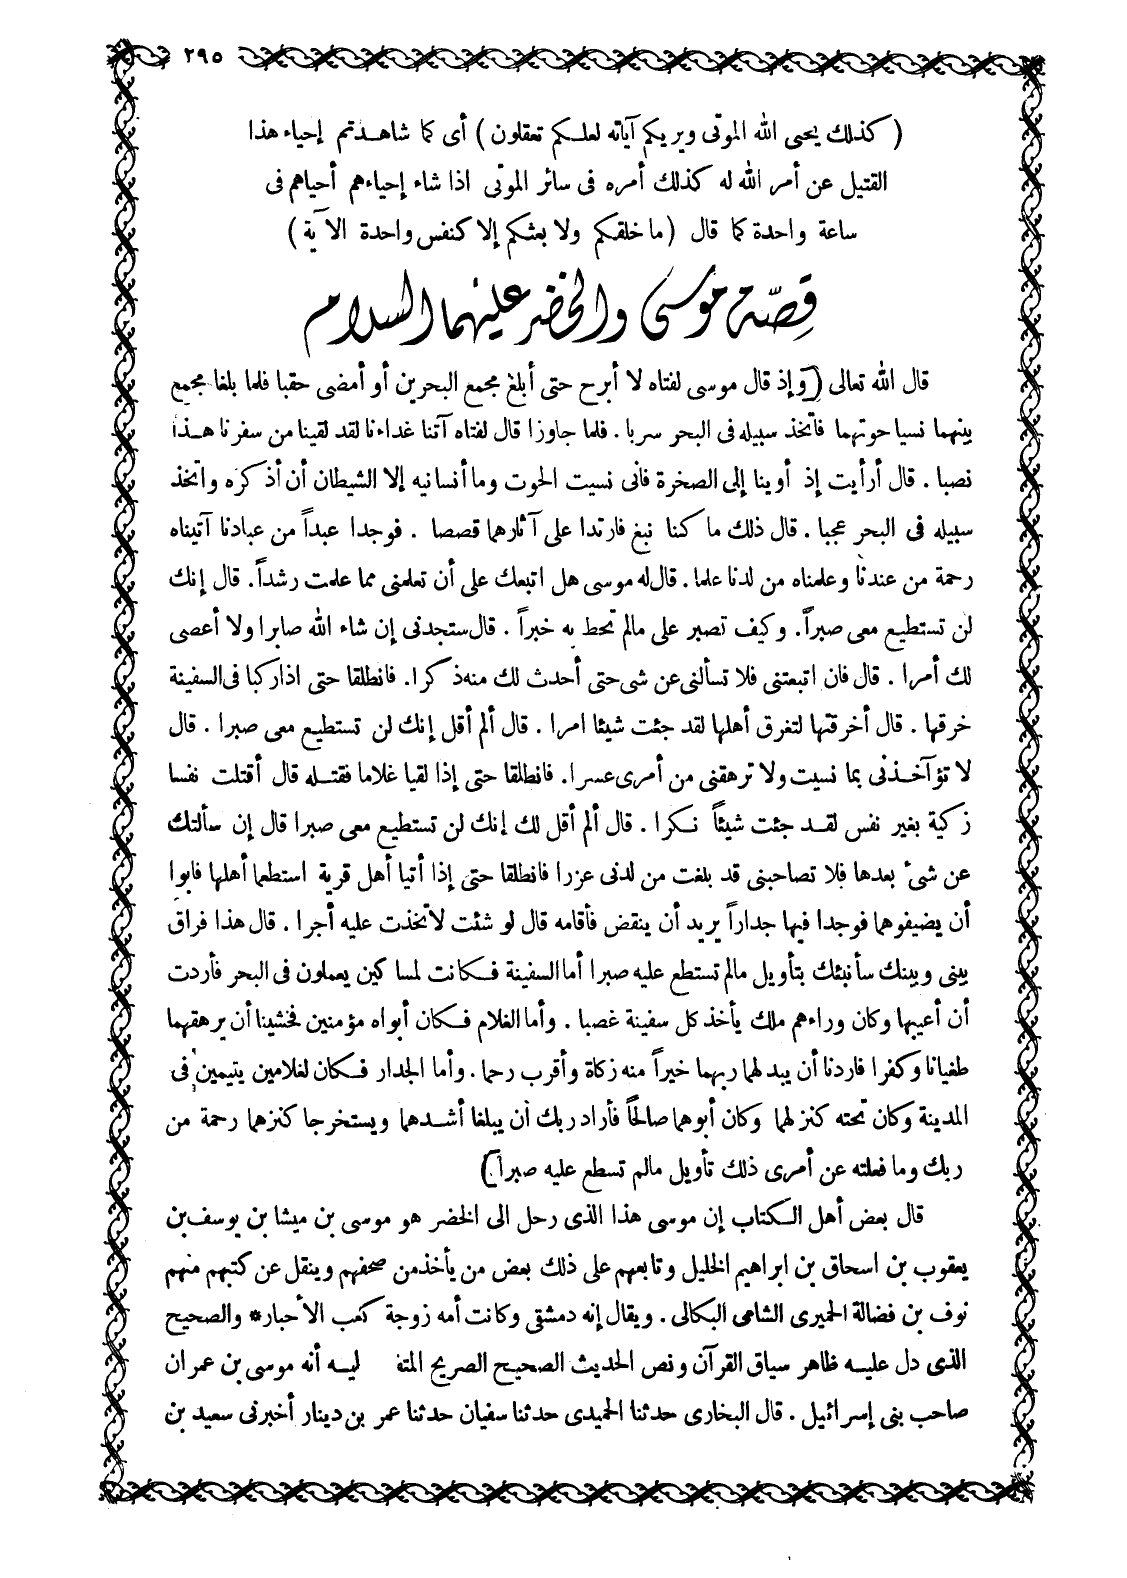 ٢٩٥
( كذلك يحيى الله الموتى ويريكم آياته لعلكم تعقلون ) أى كما شاهدتم إحياء هذا
القتيل عن أمر الله له كذلك أمره فى سائر الموتى اذا شاء إحياءهم أحياهم فى
ساعة واحدة كما قال ( ما خلقكم ولا بعثكم إلا كنفس واحدة الآية )
قصة موسى والخضر عليهما السلام
قال الله تعالى ( وإذ قال موسى لفتاه لا أبرح حتى أبلغ مجمع البحرين أو أمضى حقبا فلما بلغا مجمع
بينهما نسيا حوتهما فاتخذ سبيله فى البحر سربا . فلما جاوزا قال لفتاه آتنا غداءنا لقد لقينا من سفرنا هذا
نصبا . قال أرأيت إذ أوينا إلى الصخرة فانى نسيت الحوت وما أنسانيه إلا الشيطان أن أذكره واتخذ
سبيله فى البحر عجبا . قال ذلك ما كنا نبغ فارتدا على آثارهما قصصا . فوجدا عبداً من عبادنا آتيناه
رحمة من عندنا وعلمناه من لدنا علما . قال له موسى هل اتبعك على أن تعلمنى مما علمت رشداً . قال إنك
لن تستطيع معى صبراً . وكيف تصبر على مالم تحط به خبراً . قال ستجدنى إن شاء الله صابرا ولا أعصى
لك أمرا . قال فان اتبعتنى فلا تسألنى عن شى حتى أحدث لك منه ذكرا . فانطلقا حتى اذا ركبا فى السفينة
خرقها . قال أخرقتها لتغرق أهلها لقد جئت شيئا امرا . قال ألم أقل إنك لن تستطيع معى صبرا . قال
لا تؤآخذنى بما نسيت ولا ترهقنى من أمرى عسرا . فانطلقا حتى إذا لقيا غلاما فقتله قال أقتلت نفسا
زكية بغير نفس لقد جئت شيئاً نكرا . قال ألم أقل لك إنك لن تستطيع معى صبرا قال إن سألتك
عن شئ بعدها فلا تصاحبنى قد بلغت من لدنى عزرا فانطلقا حتى إذا أتيا أهل قرية استطعما أهلها فابوا
أن يضيفوهما فوجدا فيها جداراً يريد أن ينقض فأقامه قال لو شئت لاتخذت عليه أجرا . قال هذا فراق
بينى وبينك سأنبئك بتأويل مالم تستطع عليه صبرا أما السفينة فكانت لمساكين يعملون فى البحر فأردت
أن أعيبها وكان وراءهم ملك يأخذ كل سفينة غصبا . وأما الغلام فكان أبواه مؤمنين فخشينا أن يرهقهما
طغيانا وكفرا فاردنا أن يبدلهما ربهما خيراً منه زكاة وأقرب رحما . وأما الجدار فكان لغلامين يتيمين فى
المدينة وكان تحته كنز لهما وكان أبوهما صالحاً فأراد ربك أن يبلغا أشدهما ويستخرجا كنزهما رحمة من
ربك وما فعلته عن أمرى ذلك تأويل مالم تسطع عليه صبراً . )
قال بعض أهل الكتاب إن موسى هذا الذى رحل الى الخضر هو موسى بن ميشا بن يوسف بن
يعقوب بن اسحاق بن ابراهيم الخليل وتابعهم على ذلك بعض من يأخذ من صحفهم وينقل عن كتبهم منهم
نوف بن فضالة الحميرى الشامى البكالى . ويقال إنه دمشقى وكانت أمه زوجة كعب الأحبار* والصحيح
الذى دل عليه ظاهر سياق القرآن ونص الحديث الصحيح الصريح المتف ليه أنه موسى بن عمران
صاحب بنى إسرائيل . قال البخارى حدثنا الحميدى حدثنا سفيان حدثنا عمر بن دينار أخبرنى سعيد بن